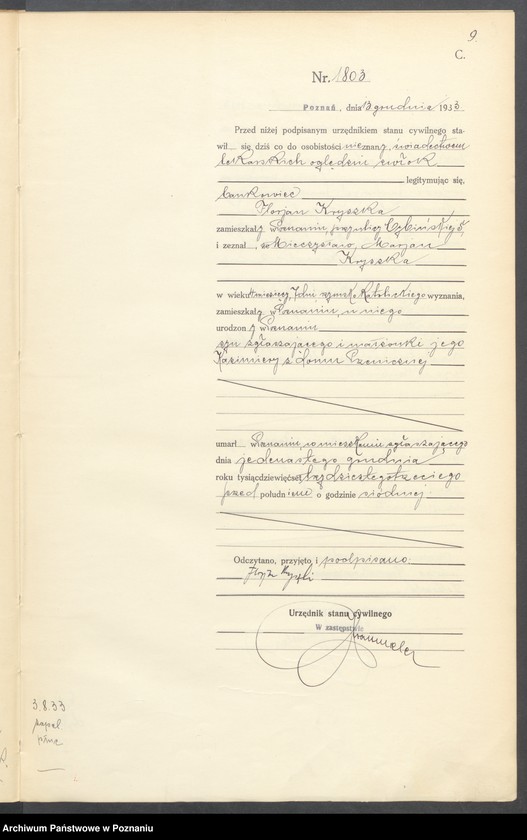 9.
C.
Nr. 1803
Poznań, dnia 13 grudnia 1933
Przed niżej podpisanym urzędnikiem stanu cywilnego sta-
wił się dziś co do osobistości nieznany, świadectwem
lekarskich oględzin zwłok
legitymując się,
bankowiec
Florjan Kryszka
zamieszkały w Poznaniu, przy ulicy 5
i zeznał, że Mieczysław, Marjan
Kryszka
w wieku miesięcy, 7 dni, rzymsko katolickiego wyznania,
zamieszkały w Poznaniu, u niego
urodzony w Poznaniu
syn zgłaszającego i małżonki jego
Kazimiery z domu Pszenicznej
umarł w Poznaniu, w mieszkaniu zgłaszającego
dnia jedenastego grudnia
roku tysiącdziewięćset trzydziestego trzeciego
przed południem o godzinie siódmej
Odczytano, przyjęto i podpisano
Urzędnik stanu cywilnego
W zastępstwie
3.8.33
Archiwum Państwowe w Poznaniu